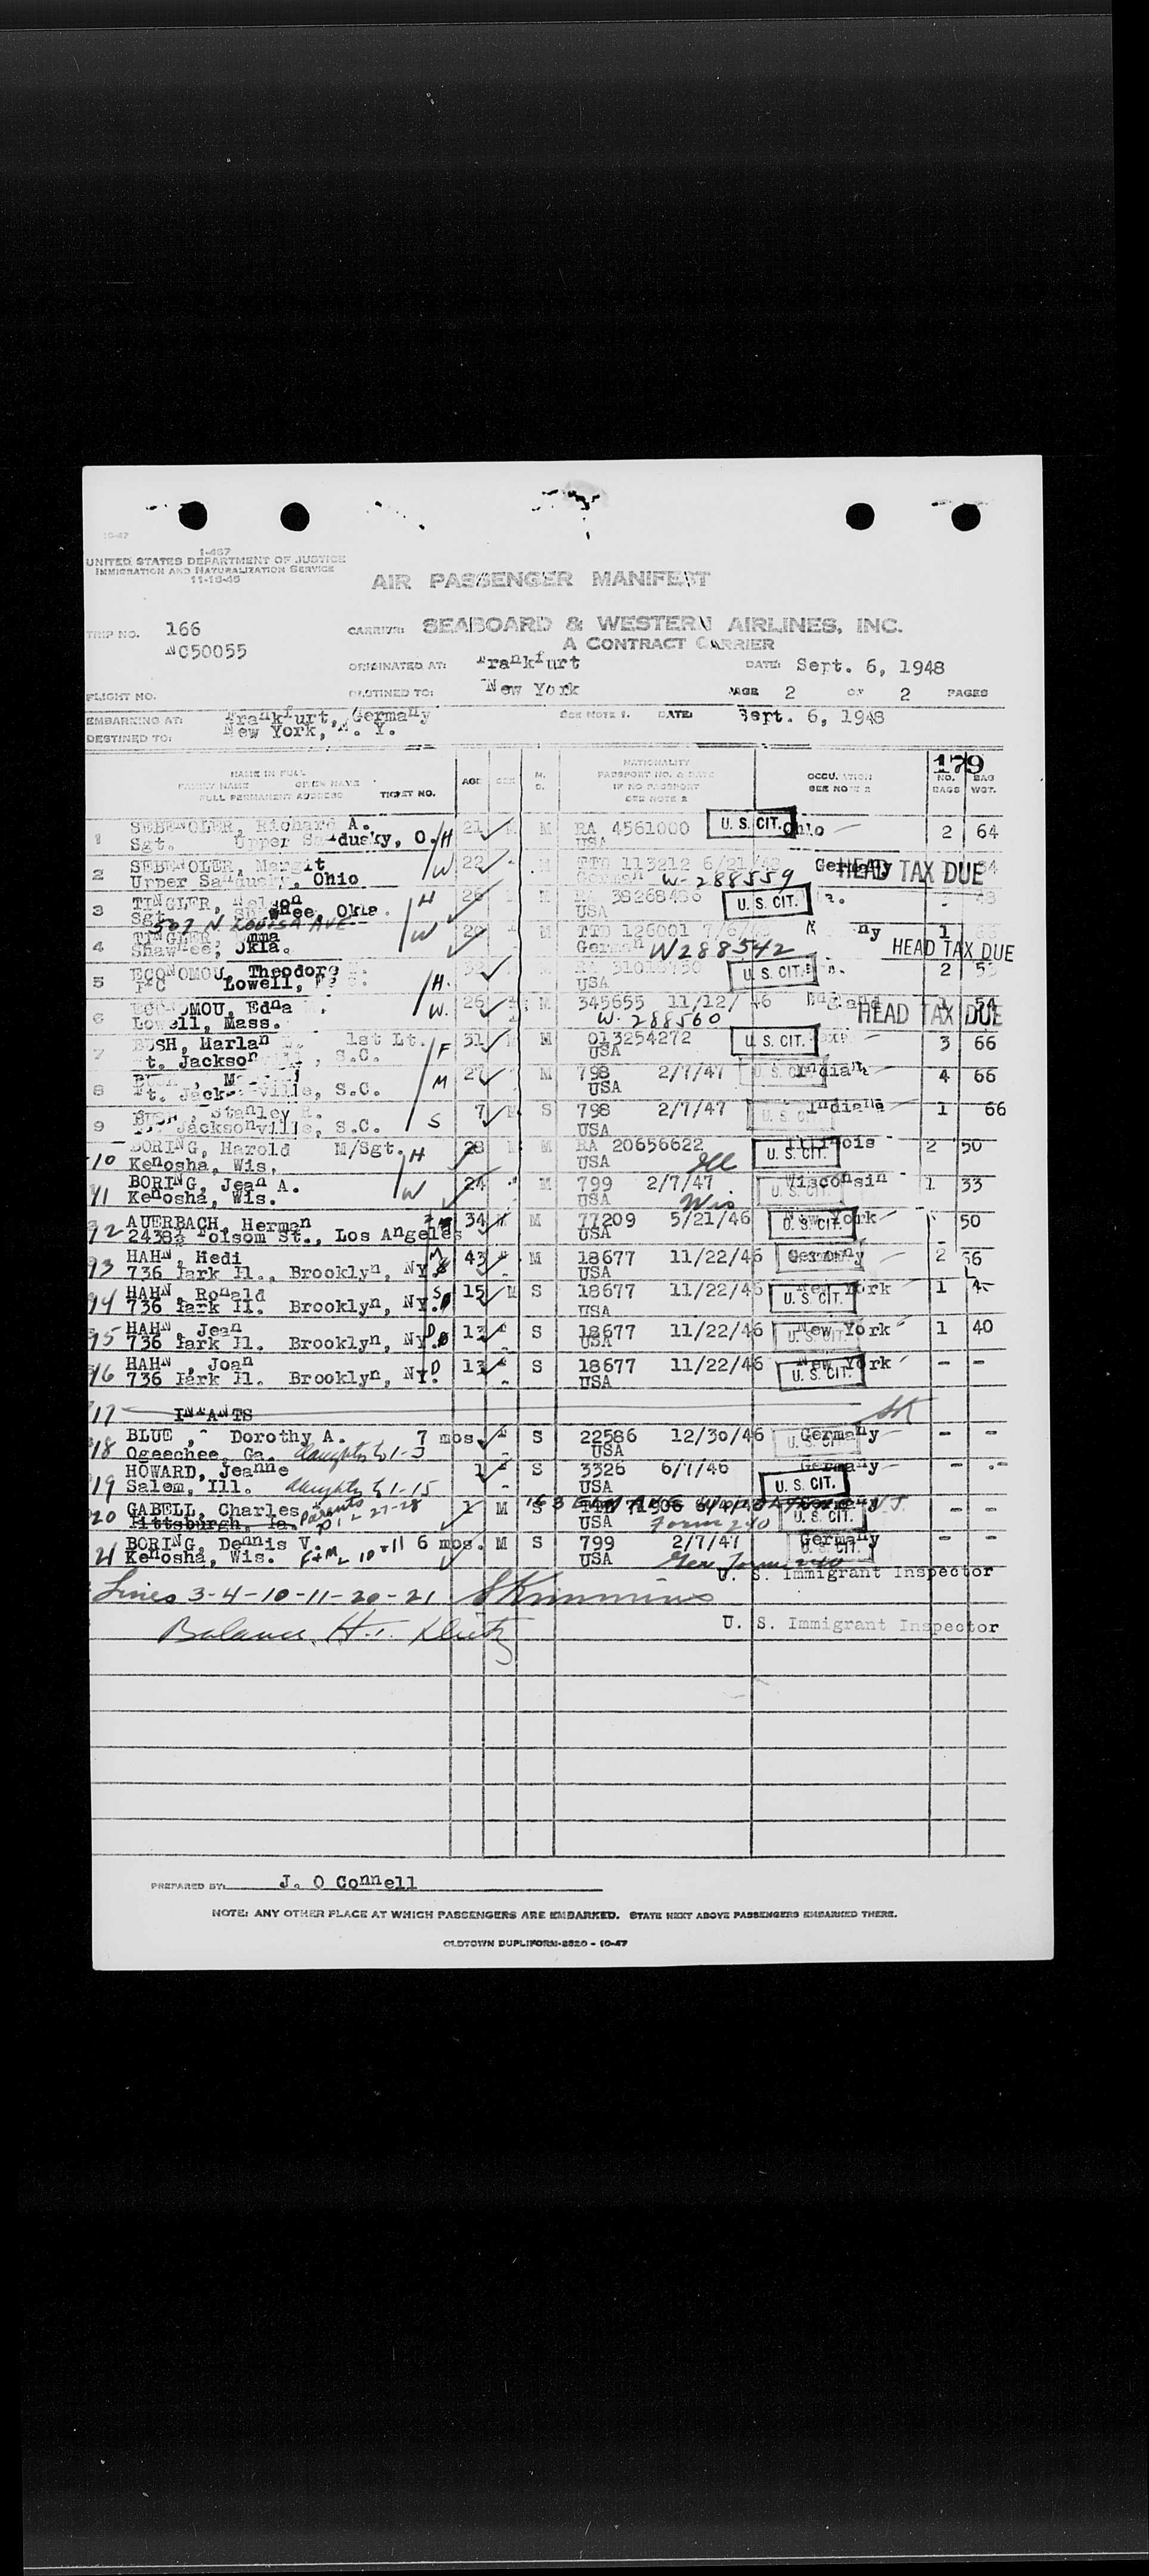 10-47
I-467
UNITED STATES DEPARTMENT OF JUSTICE
IMMIGRATION AND NATURALIZATION SERVICE
11-18-45
AIR PASSENGER MANIFEST
TRIP NO. 166
NC50055
CARRIER: SEABOARD & WESTERN AIRLINES, INC.
A CONTRACT CARRIER
ORIGINATED AT: Frankfurt DATE: Sept. 6, 1948
FLIGHT NO. DESTINED TO: New York PAGE 2 OF 2 PAGES
EMBARKING AT: Frankfurt, Germany SEE NOTE 1. DATE: Sept. 6, 1948
DESTINED TO: New York, N. Y.
179
NAME IN FULL
FAMILY NAME GIVEN NAME
FULL PERMANENT ADDRESS TICKET NO. AGE SEX M. NATIONALITY
PASSPORT NO. & DATE
IF NO PASSPORT
SEE NOTE 2 OCCUPATION
SEE NOTE 2 NO. BAGS BAG WGT.
1 SEBENOLER, Richard A. H 21 M RA 4561000 U. S. CIT. Ohio 2 64
Sgt. Upper Sandusky, O. USA
2 SEBENOLER, Margit W 22 TTD 113212 Germany HEAD TAX DUE
Upper Sandusky, Ohio German W-288559
3 TINGLER, Nelson H 26 RA 38268486 U. S. CIT.
Sgt. Shawnee, Okla. USA
507 N. LOUISA AVE
4 TINGLER, Emma W M TTD 126001 1
Shawnee, Okla. German W288542 HEAD TAX DUE
5 ECONOMOU, Theodore H. U. S. CIT. 2
Lowell, USA
6 ECONOMOU, Edna W. 26 M 345655 11/12/46 England 1 54
Lowell, Mass. W-288560 HEAD TAX DUE
7 BUSH, Harlan 1st Lt. F 31 M 013254272 U. S. CIT. 3 66
Ft. Jackson, S.C. USA
8 M 27 M 798 2/7/47 U. S. CIT. Indiana 4 66
Ft. Jacksonville, S.C. USA
9 BUSH, Stanley R. S 7 S 798 2/7/47 U. S. CIT. Indiana 1 66
Ft. Jacksonville, S.C. USA
10 BORING, Harold M/Sgt. H 28 M RA 20656622 U. S. CIT. Illinois 2 50
Kenosha, Wis. USA Ill
11 BORING, Jean A. W 24 M 799 2/7/47 U. S. CIT. Wisconsin 1 33
Kenosha, Wis. USA Wis
12 AUERBACH, Herman 34 M M 77209 5/21/46 U. S. CIT. New York 50
2438½ Folsom St., Los Angeles USA
13 HAHN, Hedi M 43 F M 18677 11/22/46 U. S. CIT. Germany 2 56
736 Park Pl., Brooklyn, NY. USA
14 HAHN, Ronald S 15 M S 18677 11/22/46 U. S. CIT. New York 1
736 Park Pl. Brooklyn, NY. USA
15 HAHN, Jean D 13 F S 18677 11/22/46 U. S. CIT. New York 1 40
736 Park Pl. Brooklyn, NY. USA
16 HAHN, Joan D 13 F S 18677 11/22/46 U. S. CIT. New York - -
736 Park Pl. Brooklyn, NY. USA
17 INFANTS SK
18 BLUE, Dorothy A. 7 mos. F S 22586 12/30/46 U. S. CIT. Germany - -
Ogeechee, Ga. daughter USA
19 HOWARD, Jeanne 1 F S 3326 6/7/46 Germany - -
Salem, Ill. daughter 1-15 USA U. S. CIT.
20 GABELL, Charles Parents P1 L 27-28 1 M S TTD 71306 N.J. - -
Pittsburgh, Pa. USA Form 240 U. S. CIT.
21 BORING, Dennis V. F+M L 10+11 6 mos. M S 799 2/7/47 U. S. CIT. Germany - -
Kenosha, Wis. USA
U. S. Immigrant Inspector
Lines 3-4-10-11-20-21
Balance H.
U. S. Immigrant Inspector
PREPARED BY: J. O Connell
NOTE: ANY OTHER PLACE AT WHICH PASSENGERS ARE EMBARKED, STATE NEXT ABOVE PASSENGERS EMBARKED THERE.
OLDTOWN DUPLIFORM-2820 - 10-47